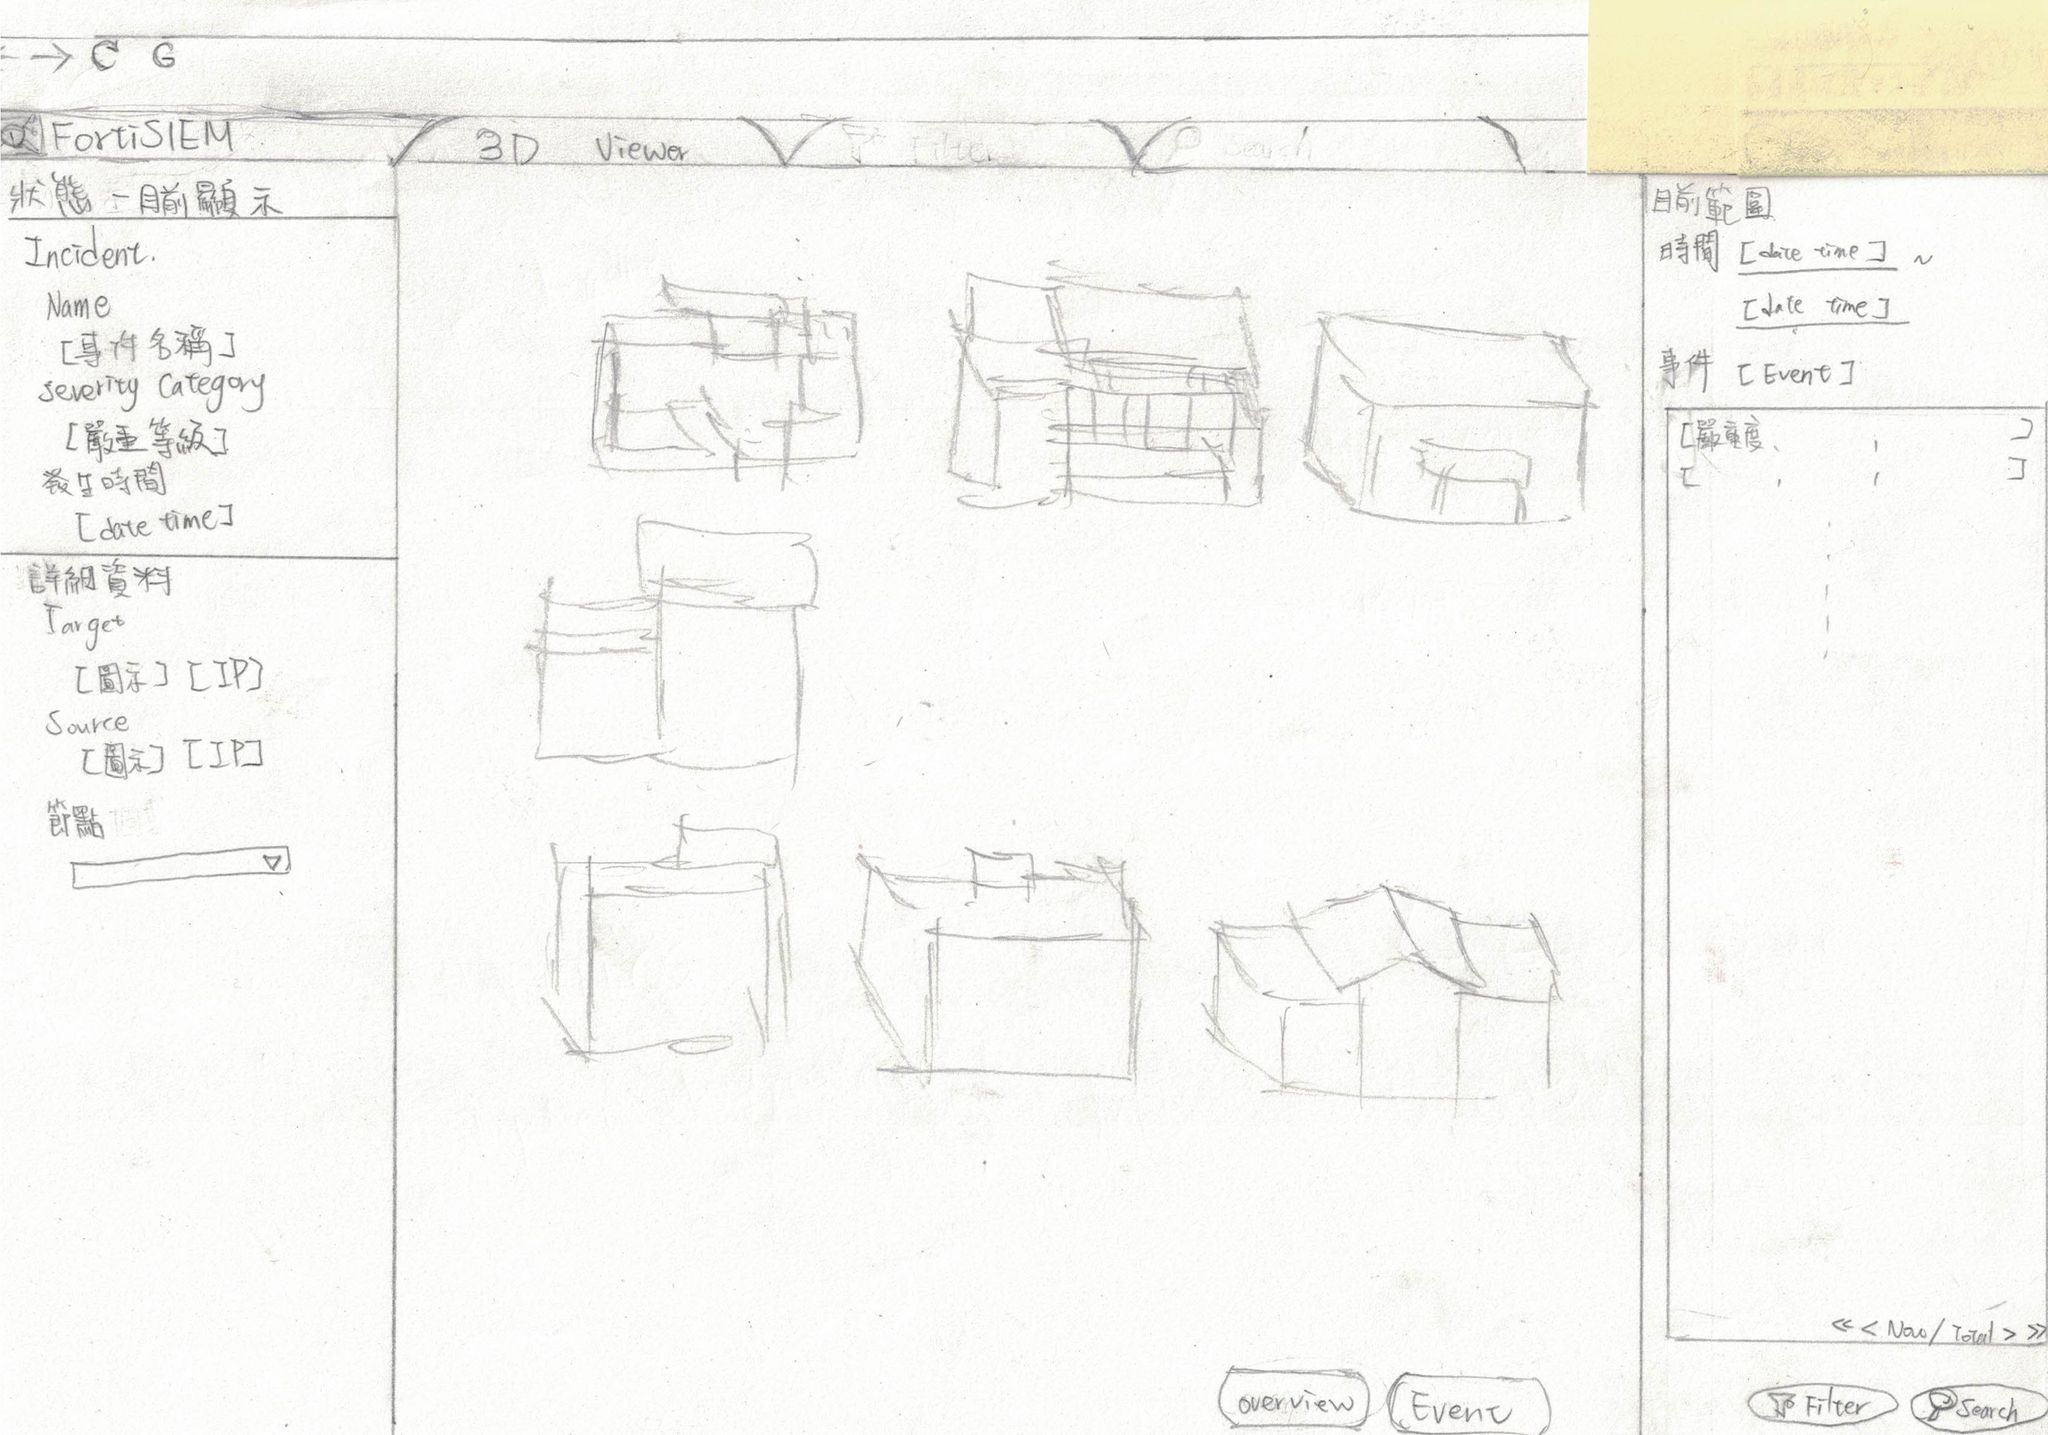 ← → C G
FortiSIEM
3D Viewer
Filter
Search
狀態 - 目前顯示
Incident.
Name
[事件名稱]
severity Category
[嚴重等級]
發生時間
[date time]
詳細資料
Target
[圖示] [IP]
Source
[圖示] [IP]
節點
overview
Event
目前範圍
時間 [date time] ~
[date time]
事件 [Event]
[嚴重度, , ]
[ , , ]
<< < Now/Total > >>
Filter
Search